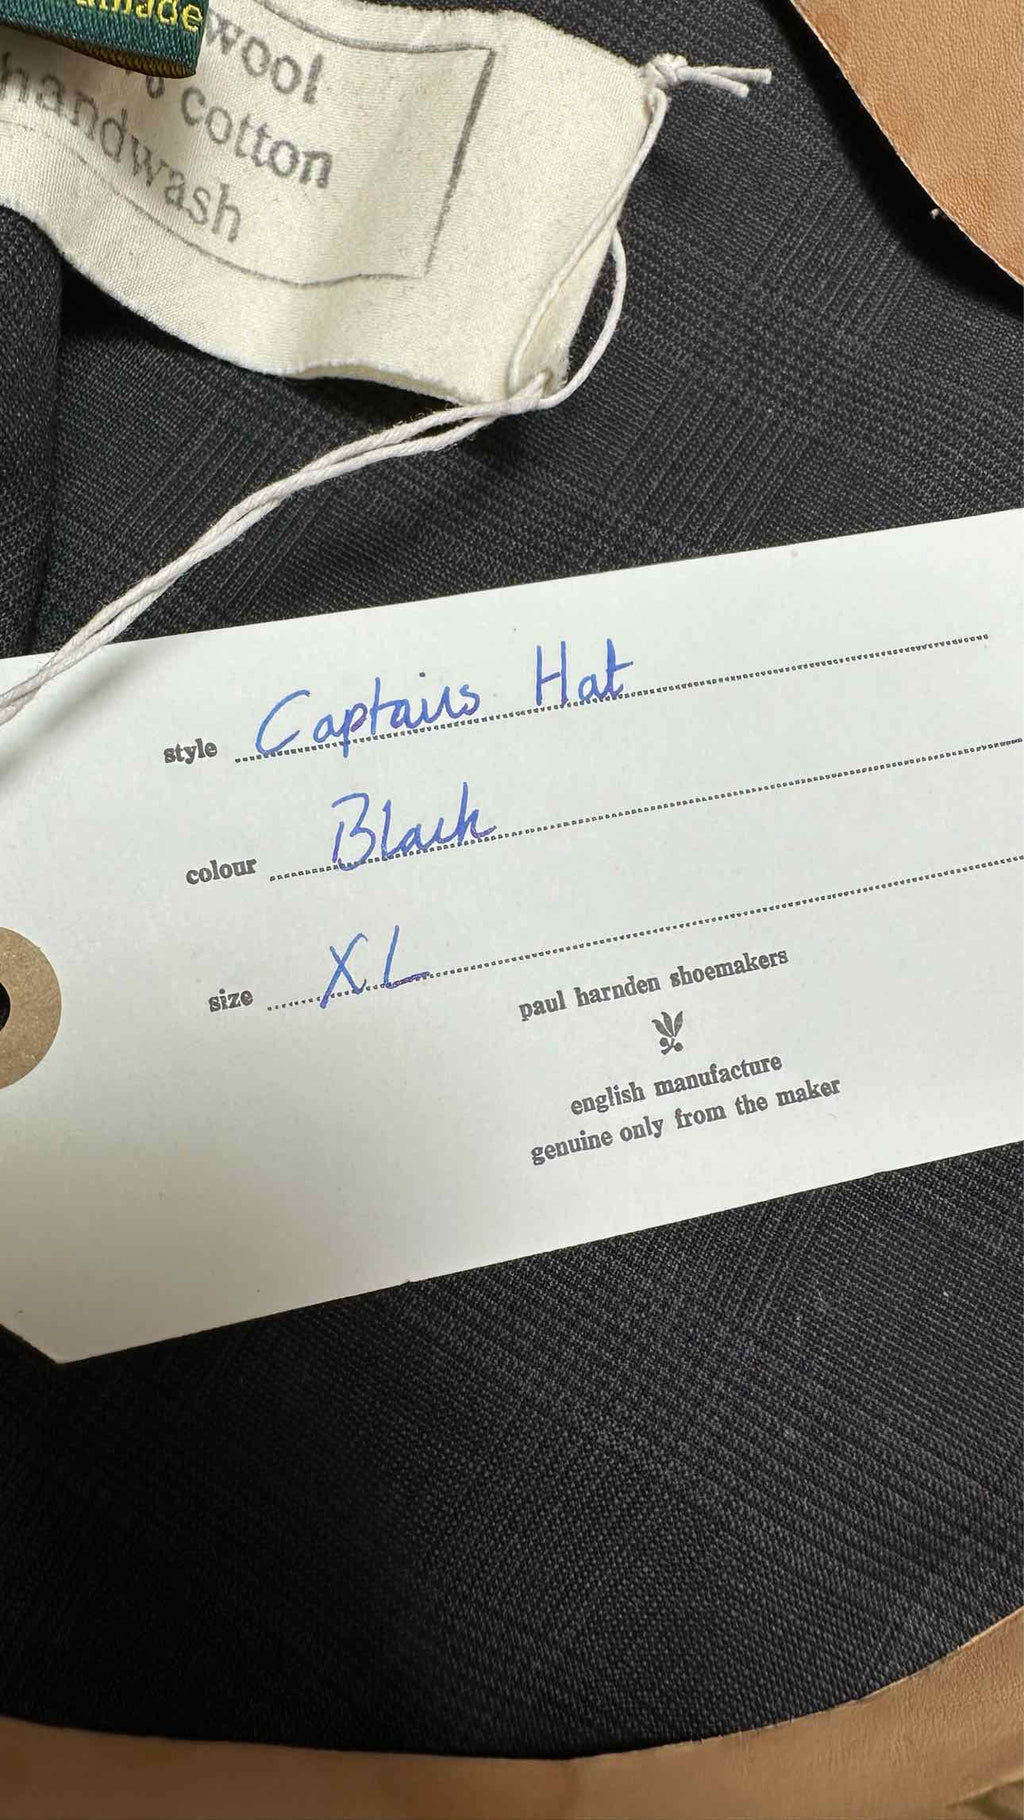 made
wool
% cotton
handwash
style Captains Hat
colour Black
size XL
paul harnden shoemakers
english manufacture
genuine only from the maker